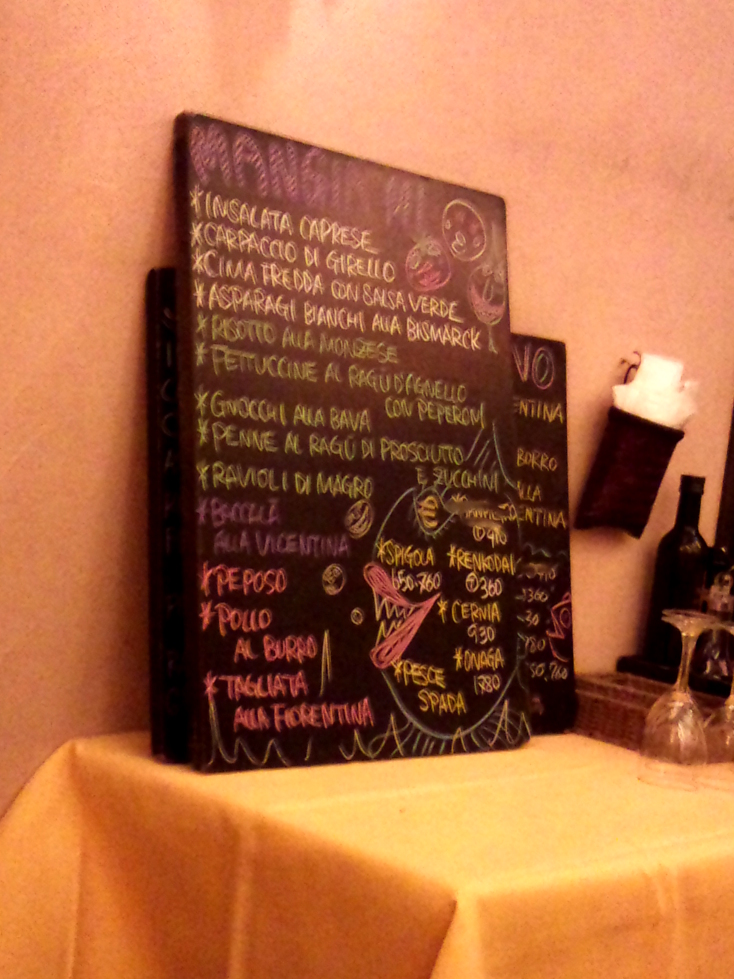 *INSALATA CAPRESE
*CARPACCIO DI GIRELLO
*CIMA FREDDA CON SALSA VERDE
*ASPARAGI BIANCHI ALLA BISMARCK
*RISOTTO ALLA MONZESE
*FETTUCCINE AL RAGÙ D'AGNELLO
CON PEPERONI
*GNOCCHI ALLA BAVA
*PENNE AL RAGÙ DI PROSCIUTTO
E ZUCCHINI
*RAVIOLI DI MAGRO
*BACCALÀ
ALLA VICENTINA
*PEPOSO
*POLLO
AL BURRO
*TAGLIATA
ALLA FIORENTINA
*SPIGOLA
650.760
*RENKODAI
①360
*CERNIA
930
*ONAGA
1780
*PESCE
SPADA
VO
ENTINA
BURRO
LLA
ENTINA
1360
30
780
50.760